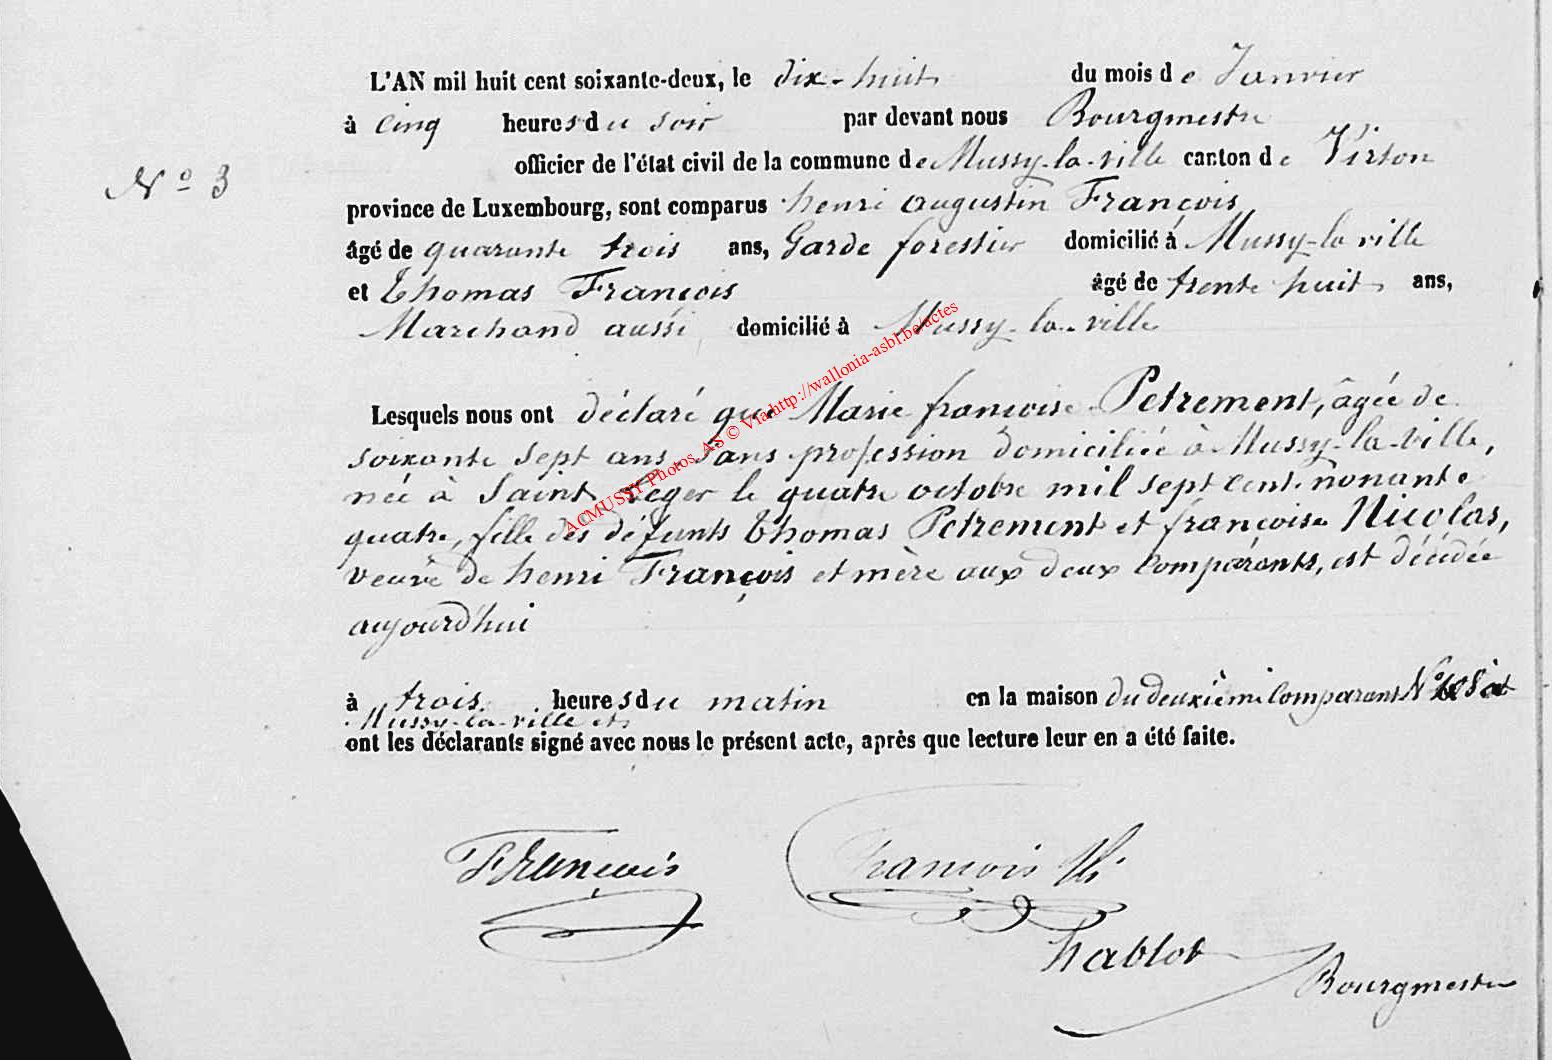 L'AN mil huit cent soixante-deux, le dix-huit du mois de Janvier
à cinq heures du soir par devant nous Bourgmestre
officier de l'état civil de la commune de Mussy-la-ville canton de Virton
N° 3
province de Luxembourg, sont comparus henri augustin François
âgé de quarante trois ans, Garde forestier domicilié à Mussy-la ville
et Thomas François âgé de trente huit ans,
Marchand aussi domicilié à Mussy-la-ville
Lesquels nous ont déclaré que Marie françoise Petrement, âgée de
soixante sept ans, sans profession domiciliée à Mussy-la-ville,
née à Saint Léger le quatre octobre mil sept cent nonante
quatre, fille des défunts Thomas Petrement et françoise Nicolas,
veuve de henri François et mère aux deux comparants, est décédée
aujourd'hui
à trois heures du matin en la maison du deuxième comparant N° à
Mussy-la-ville et
ont les déclarants signé avec nous le présent acte, après que lecture leur en a été faite.
François François Th
hablot
Bourgmestre
ACMUSSY Photos AS © Via http://wallonia-asbl.be/actes